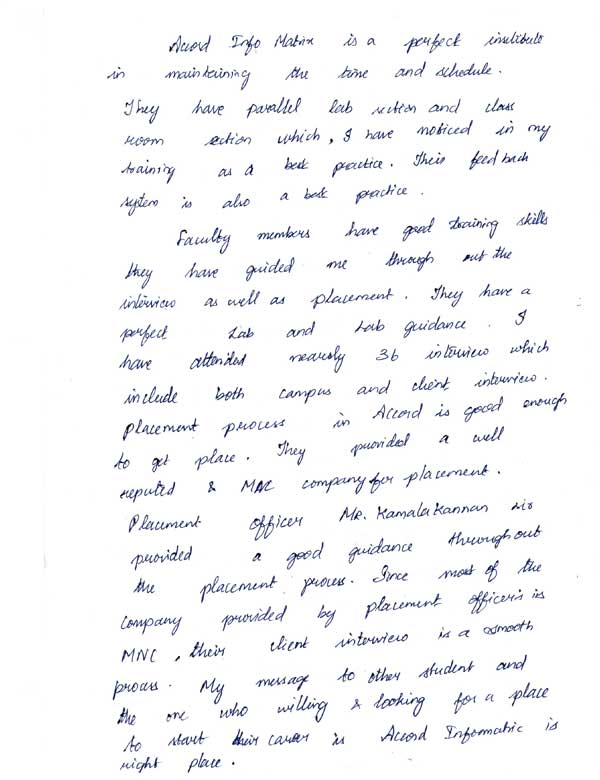 Accord Info Matrix is a perfect institute
in maintaining the time and schedule.
They have parallel lab section and class
room section which, I have noticed in my
training as a best practice. Their feed back
system is also a best practice.
Faculty members have good training skills
they have guided me through out the
interview as well as placement. They have a
perfect Lab and Lab guidance. I
have attended nearly 36 interview which
include both campus and client interview.
placement process in Accord is good enough
to get place. They provided a well
reputed & MNC company for placement.
Placement officer Mr. Kamala Kannan sir
provided a good guidance throughout
the placement process. Since most of the
company provided by placement officer's is
MNC, their client interview is a smooth
process. My message to other student and
the one who willing & looking for a place
to start their career is Accord Informatric is
right place.